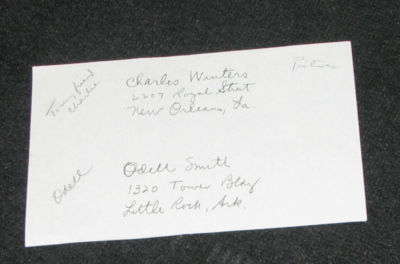 Tom's friend
Charlie
Charles Winters
2207 Royal Street
New Orleans, La.
Odell
Odell Smith
1320 Tower Bldg
Little Rock, Ark.